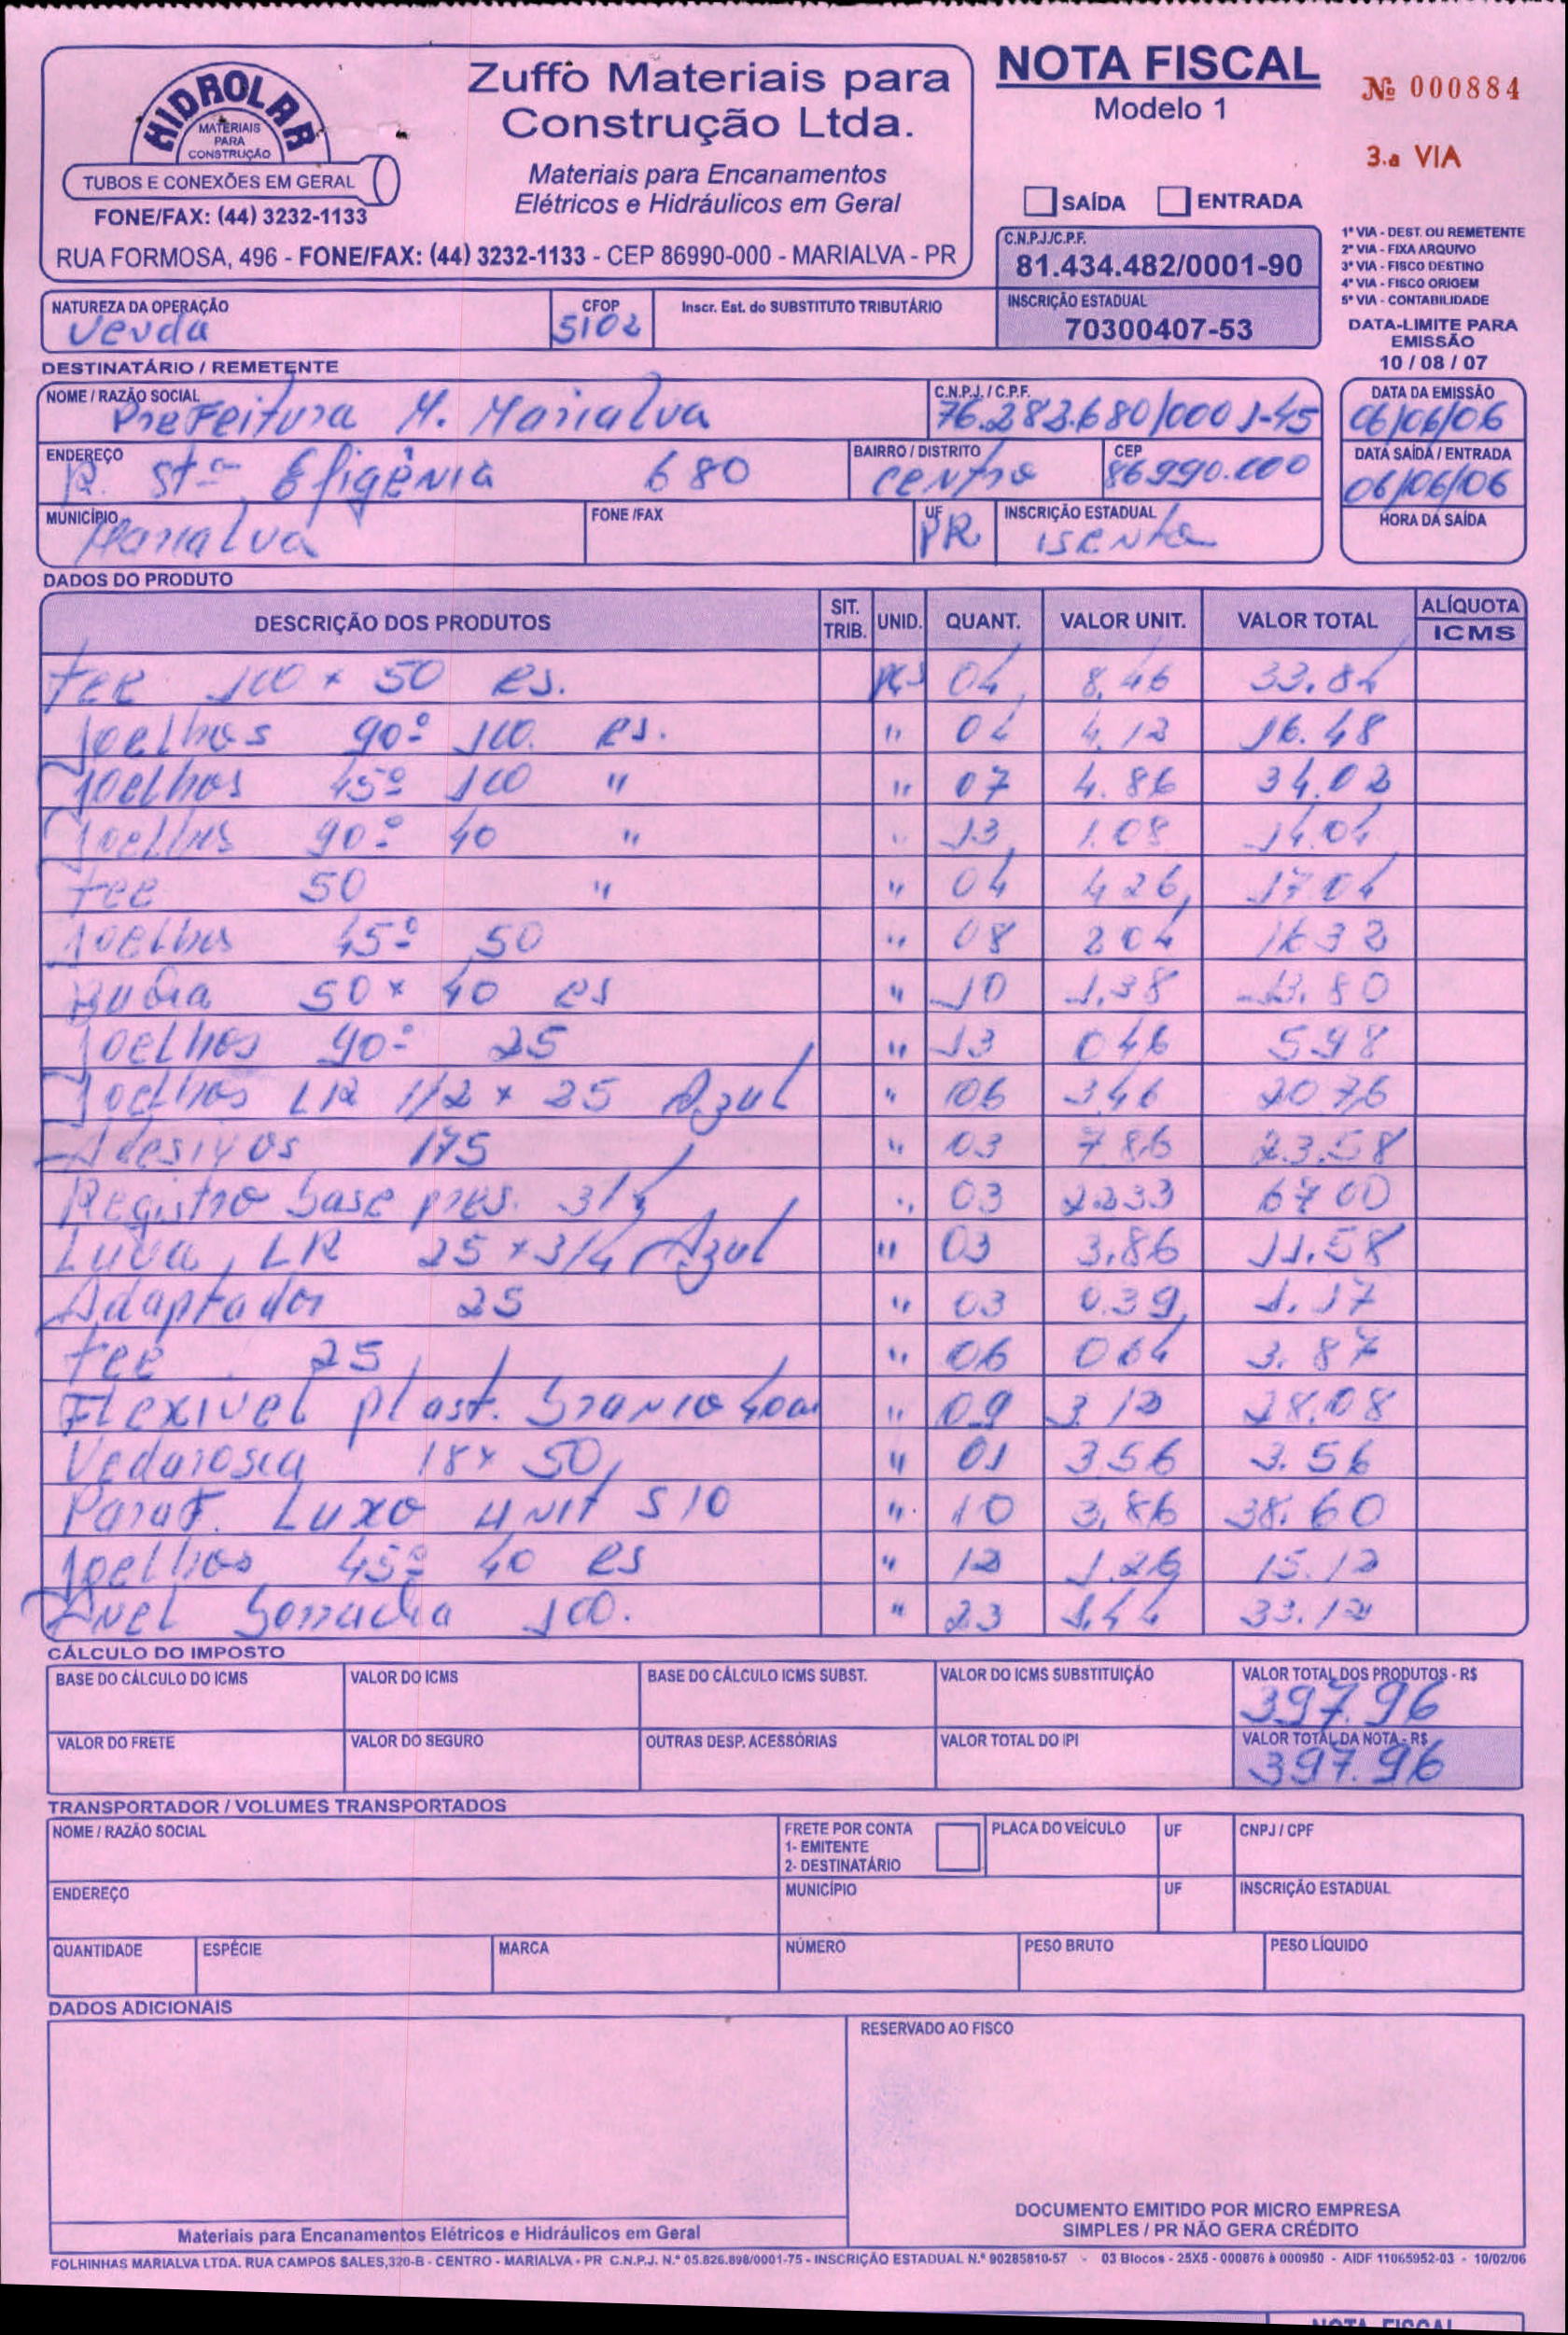 HIDROLAR
MATERIAIS
PARA
CONSTRUÇÃO
TUBOS E CONEXÕES EM GERAL
FONE/FAX: (44) 3232-1133
Zuffo Materiais para
Construção Ltda.
Materiais para Encanamentos
Elétricos e Hidráulicos em Geral
RUA FORMOSA, 496 - FONE/FAX: (44) 3232-1133 - CEP 86990-000 - MARIALVA - PR
NOTA FISCAL
Modelo 1
Nº 000884
3.a VIA
SAÍDA ENTRADA
C.N.P.J./C.P.F.
81.434.482/0001-90
INSCRIÇÃO ESTADUAL
70300407-53
1ª VIA - DEST. OU REMETENTE
2ª VIA - FIXA ARQUIVO
3ª VIA - FISCO DESTINO
4ª VIA - FISCO ORIGEM
5ª VIA - CONTABILIDADE
DATA-LIMITE PARA
EMISSÃO
10 / 08 / 07
NATUREZA DA OPERAÇÃO CFOP Inscr. Est. do SUBSTITUTO TRIBUTÁRIO
Venda 5102
DESTINATÁRIO / REMETENTE
NOME / RAZÃO SOCIAL C.N.P.J. / C.P.F. DATA DA EMISSÃO
Prefeitura M. Marialva 76.282.680/0001-45 06/06/06
ENDEREÇO BAIRRO / DISTRITO CEP DATA SAÍDA / ENTRADA
R. Stª Efigênia 680 Centro 86990.000 06/06/06
MUNICÍPIO FONE /FAX UF INSCRIÇÃO ESTADUAL HORA DA SAÍDA
Marialva PR isento
DADOS DO PRODUTO
DESCRIÇÃO DOS PRODUTOS SIT. TRIB. UNID. QUANT. VALOR UNIT. VALOR TOTAL ALÍQUOTA ICMS
tee 100 x 50 es. pçs 04 8,46 33,84
Joelhos 90º 100 es. " 04 4,12 16.48
Joelhos 45º 100 " " 07 4.86 34.02
Joelhos 90º 40 " " 13 1.08 14.04
tee 50 " " 04 4 26 17 04
Joelhos 45º 50 " 08 2 04 16 32
Bucha 50 x 40 es " 10 1,38 13.80
Joelhos 90º 25 " 13 0 46 5 98
Joelhos LR 1/2 x 25 Azul " 06 3 46 20 76
Adesivos 175 " 03 7 86 23.58
Registro base pres. 3/4 " 03 22 33 67 00
Luva LR 25 x 3/4 Azul " 03 3,86 11.58
Adaptador 25 " 03 0.39 1.17
tee 25 " 06 0 64 3.87
Flexivel plast. branco 40cm " 09 3 12 28.08
Vedarosca 18 x 50 " 01 3 56 3.56
Paraf. Luxo unit S10 " 10 3,86 38.60
Joelhos 45º 40 es " 12 1.26 15.12
Anel borracha 100. " 23 1,44 33.12
CÁLCULO DO IMPOSTO
BASE DO CÁLCULO DO ICMS VALOR DO ICMS BASE DO CÁLCULO ICMS SUBST. VALOR DO ICMS SUBSTITUIÇÃO VALOR TOTAL DOS PRODUTOS - R$
397.96
VALOR DO FRETE VALOR DO SEGURO OUTRAS DESP. ACESSÓRIAS VALOR TOTAL DO IPI VALOR TOTAL DA NOTA - R$
397.96
TRANSPORTADOR / VOLUMES TRANSPORTADOS
NOME / RAZÃO SOCIAL FRETE POR CONTA PLACA DO VEÍCULO UF CNPJ / CPF
1- EMITENTE
2- DESTINATÁRIO
ENDEREÇO MUNICÍPIO UF INSCRIÇÃO ESTADUAL
QUANTIDADE ESPÉCIE MARCA NÚMERO PESO BRUTO PESO LÍQUIDO
DADOS ADICIONAIS
RESERVADO AO FISCO
DOCUMENTO EMITIDO POR MICRO EMPRESA
SIMPLES / PR NÃO GERA CRÉDITO
Materiais para Encanamentos Elétricos e Hidráulicos em Geral
FOLHINHAS MARIALVA LTDA. RUA CAMPOS SALES,320-B - CENTRO - MARIALVA - PR C.N.P.J. N.º 05.826.898/0001-75 - INSCRIÇÃO ESTADUAL N.º 90285810-57 - 03 Blocos - 25X5 - 000876 à 000950 - AIDF 11065952-03 - 10/02/06
NOTA FISCAL